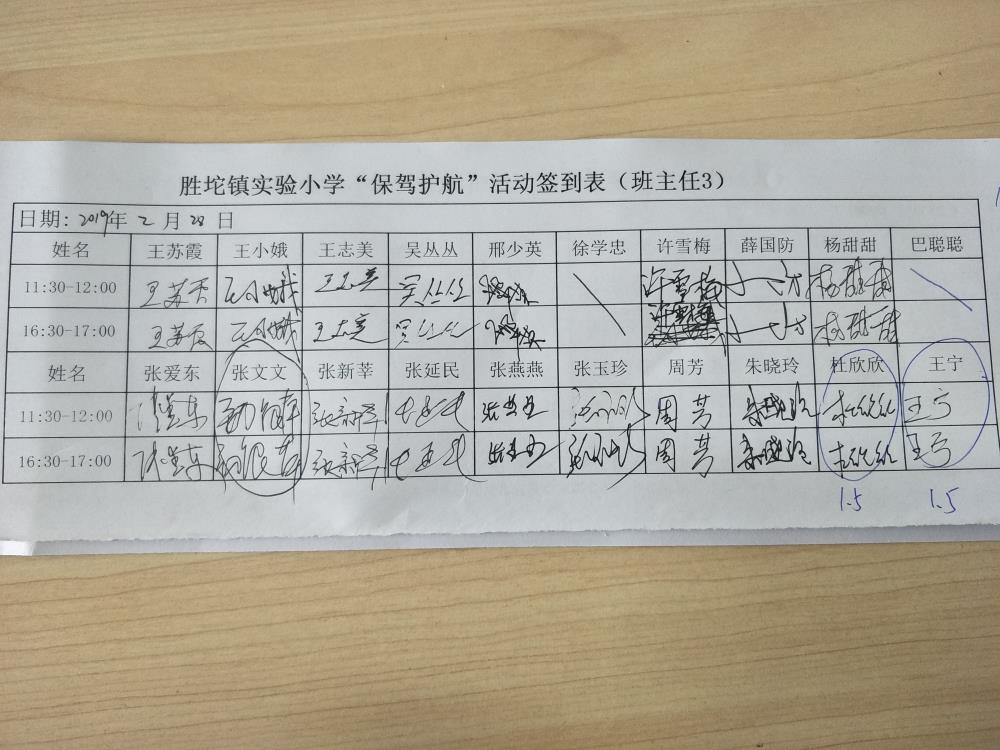 胜坨镇实验小学“保驾护航”活动签到表（班主任3）
日期: 2019年 2 月 28 日
姓名 王苏霞 王小娥 王志美 吴丛丛 邢少英 徐学忠 许雪梅 薛国防 杨甜甜 巴聪聪
11:30-12:00 王苏霞 王小娥 王志美 吴丛丛 许雪梅 杨甜甜
16:30-17:00 王苏霞 王小娥 王志美 吴丛丛 许雪梅 杨甜甜
姓名 张爱东 张文文 张新莘 张延民 张燕燕 张玉珍 周芳 朱晓玲 杜欣欣 王宁
11:30-12:00 张爱东 张新莘 周芳 朱晓玲 杜欣欣 王宁
16:30-17:00 张爱东 张新莘 周芳 朱晓玲 杜欣欣 王宁
1.5 1.5